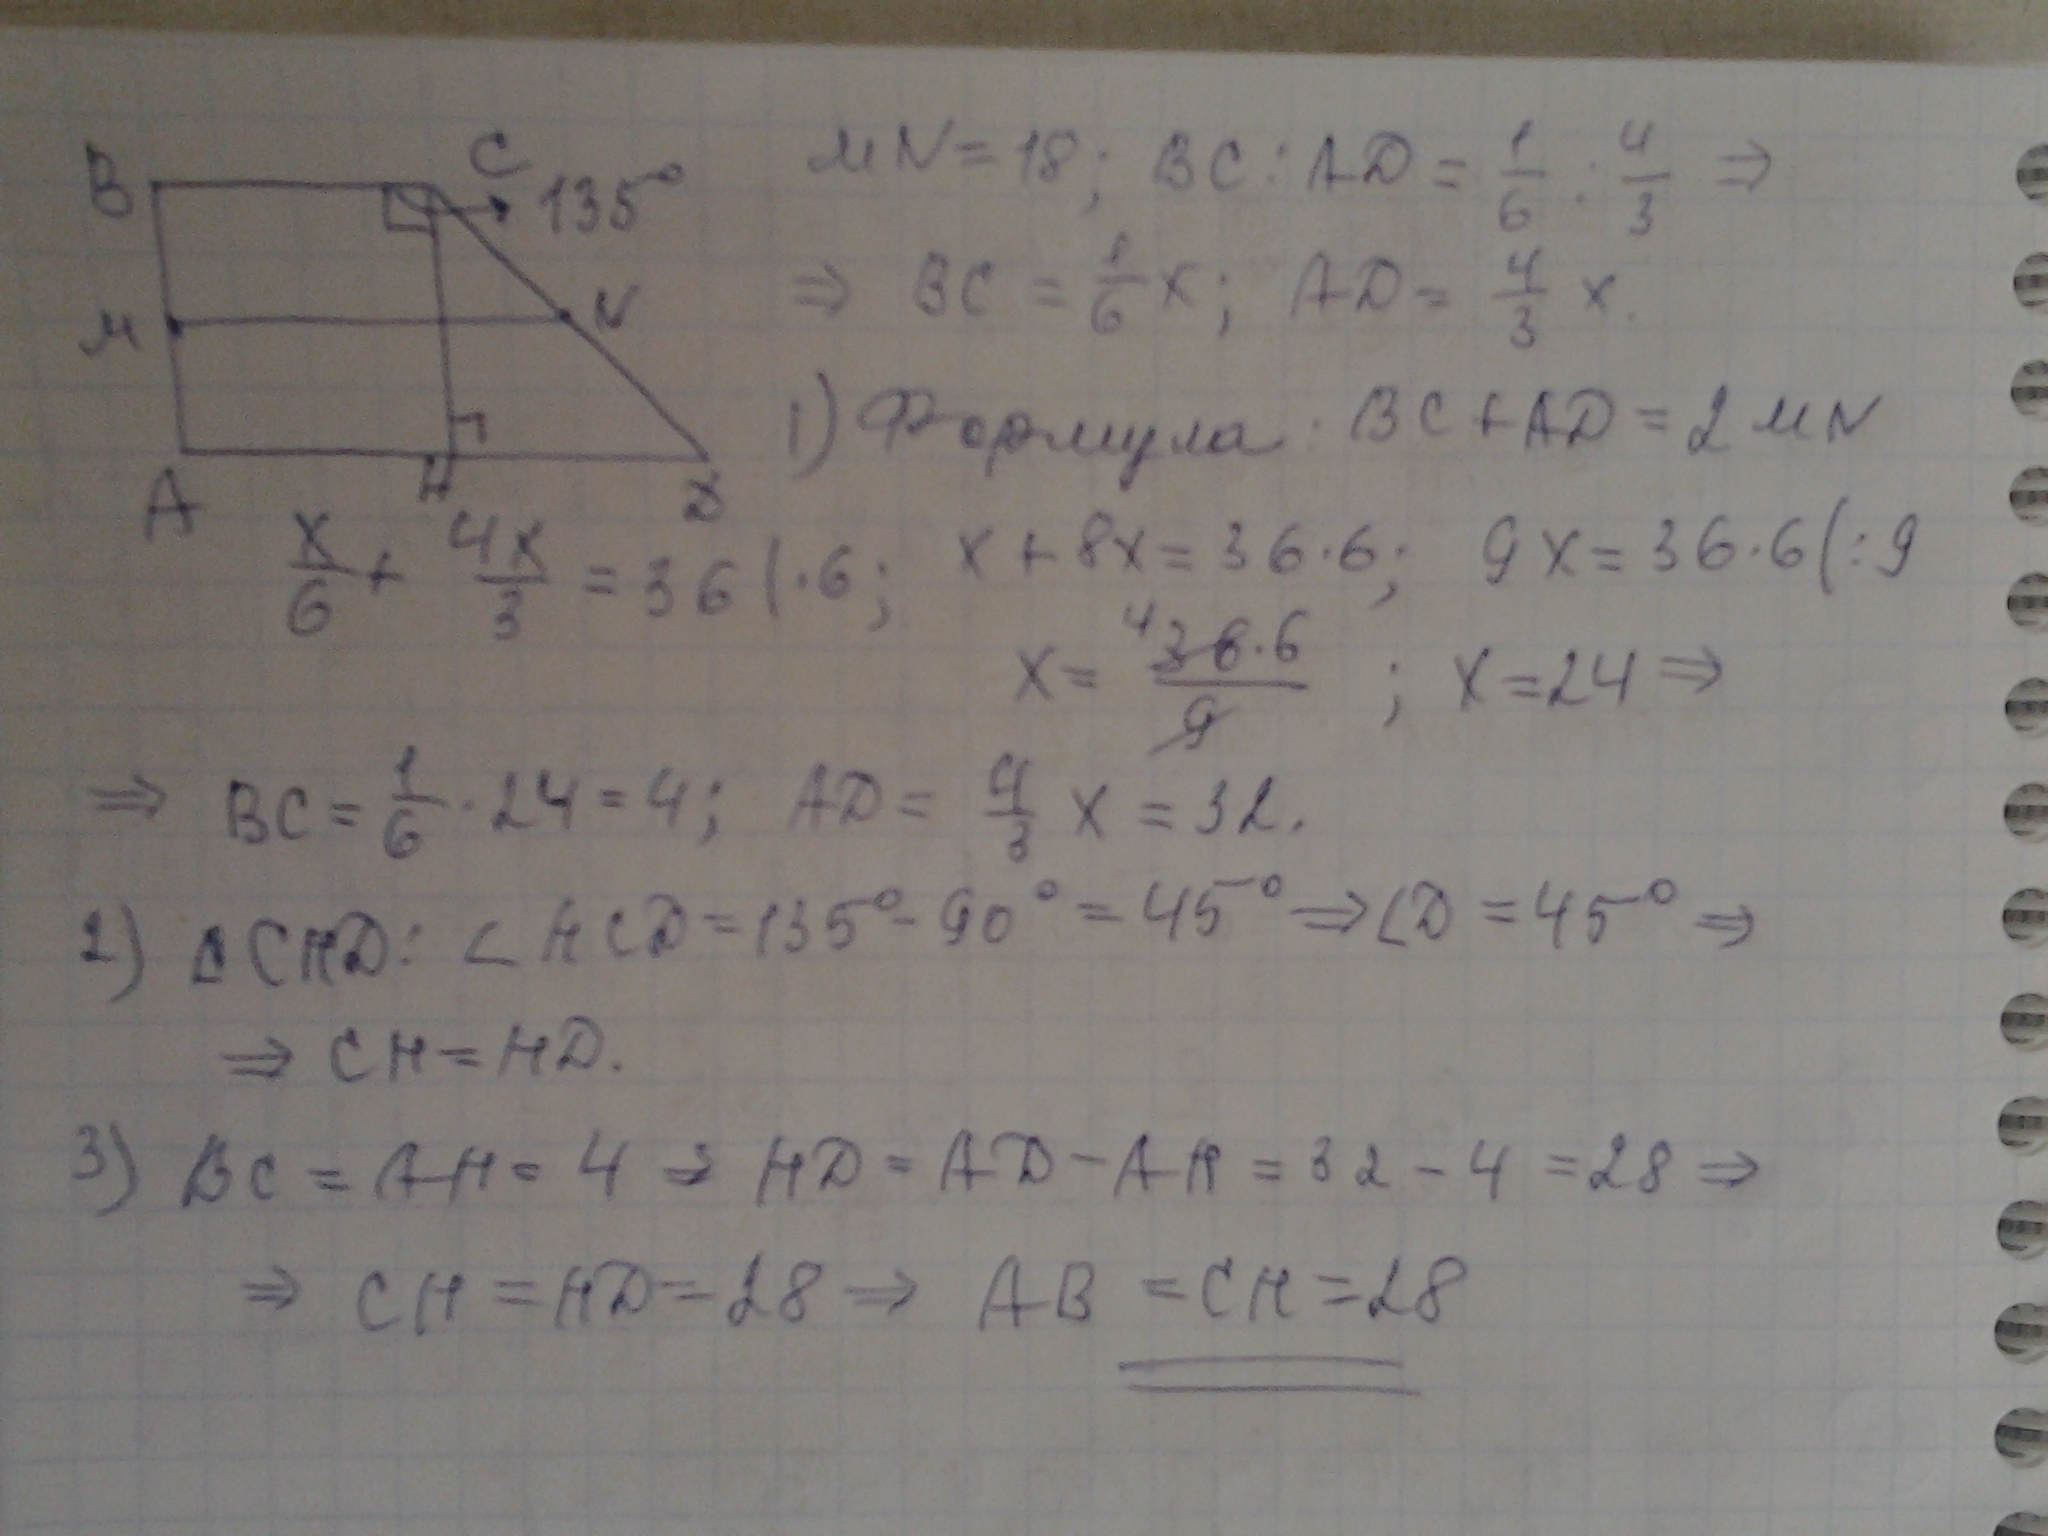 B C 135°
M N
A H D
MN = 18; BC : AD = 1/6 : 4/3 ⇒
⇒ BC = 1/6 x; AD = 4/3 x.
1) Формула: BC + AD = 2 MN
x/6 + 4x/3 = 36 | · 6; x + 8x = 36 · 6; 9x = 36 · 6 (: 9
x = ⁴36 · 6 / 9 ; x = 24 ⇒
⇒ BC = 1/6 · 24 = 4; AD = 4/3 x = 32.
2) Δ CHD: ∠ HCD = 135° - 90° = 45° ⇒ ∠D = 45° ⇒
⇒ CH = HD.
3) BC = AH = 4 ⇒ HD = AD - AH = 32 - 4 = 28 ⇒
⇒ CH = HD = 28 ⇒ AB = CH = 28